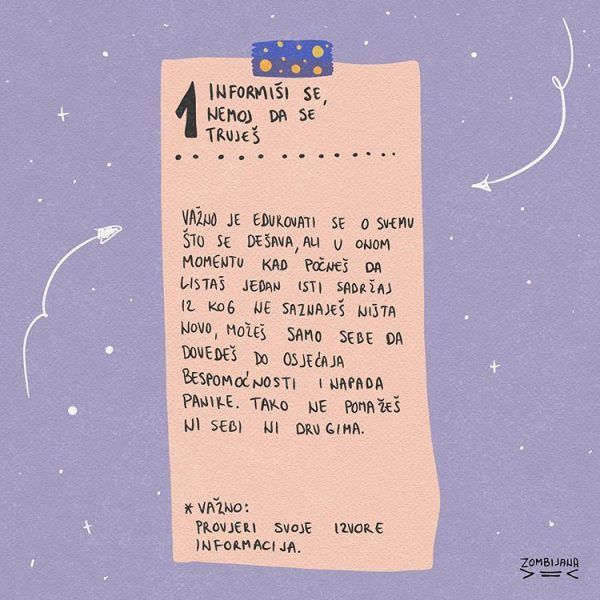 1 INFORMIŠI SE,
NEMOJ DA SE
TRUJEŠ
VAŽNO JE EDUKOVATI SE O SVEMU
ŠTO SE DEŠAVA, ALI U ONOM
MOMENTU KAD POČNEŠ DA
LISTAŠ JEDAN ISTI SADRŽAJ
IZ KOG NE SAZNAJEŠ NIŠTA
NOVO, MOŽEŠ SAMO SEBE DA
DOVEDEŠ DO OSJEĆAJA
BESPOMOĆNOSTI I NAPADA
PANIKE. TAKO NE POMAŽEŠ
NI SEBI NI DRUGIMA.
* VAŽNO:
PROVJERI SVOJE IZVORE
INFORMACIJA.
ZOMBIJANA